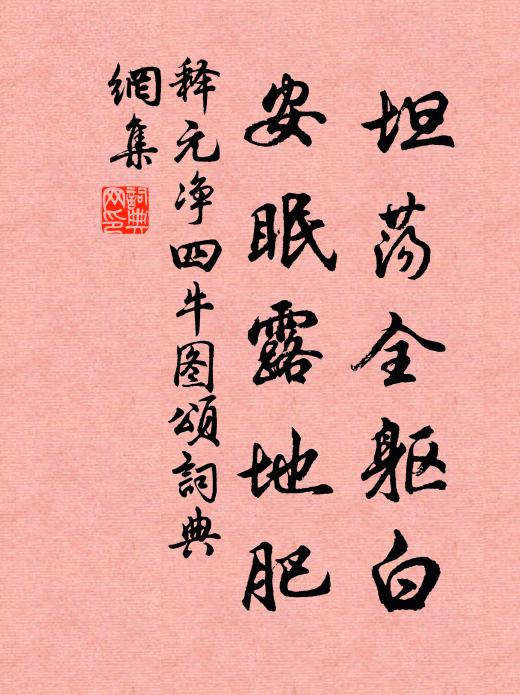 坦荡全躯白
安眠露地肥
释元净四牛图頌詞典
網集
詞典网印